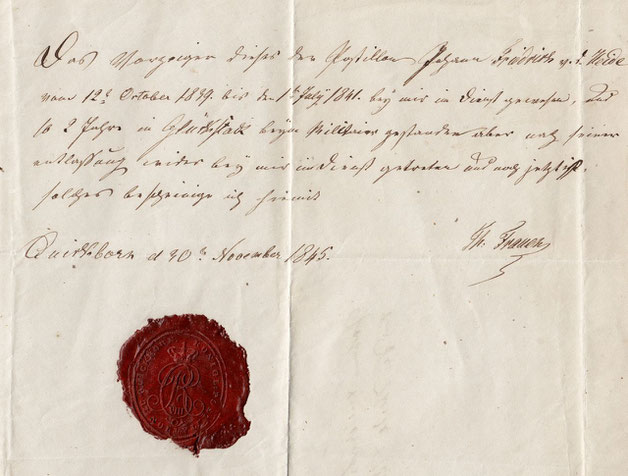 Das Vorzeiger dieses der Postillon Johann Friedrich v. d. Heide
vom 12t October 1839. bis den 1t July 1841. bey mir in Dienst gewesen, und
10 2 Jahre in Glückstadt beym Militair gestanden aber nach seiner
entlassung wider bey mir in Dienst getreten und noch jetzt ist
solches bescheinige ich hiemit
Quickborn d 30t November 1845.